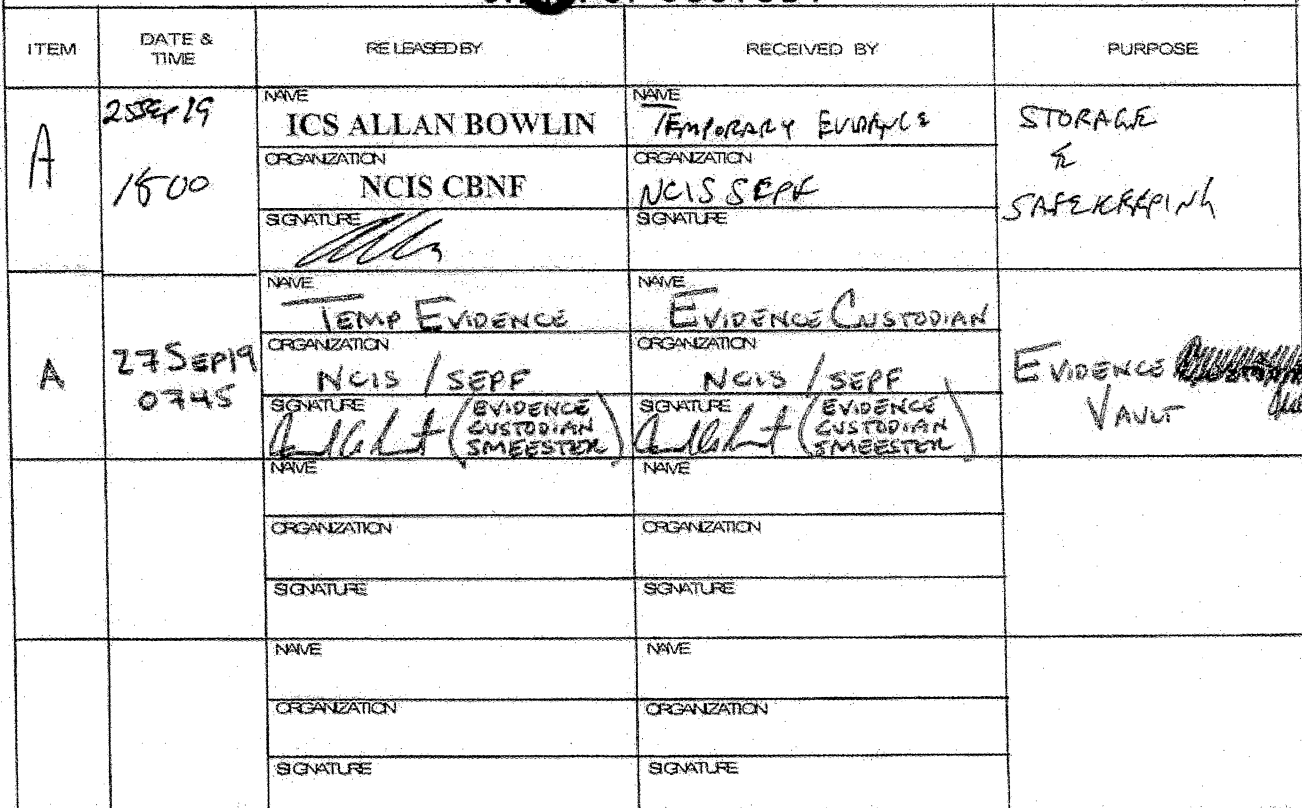 CUSTODY
ITEM
DATE & TIME
RELEASED BY
RECEIVED BY
PURPOSE
A
25Sep19
1500
NAME
ICS ALLAN BOWLIN
ORGANIZATION
NCIS CBNF
SIGNATURE
NAME
TEMPORARY EVIDENCE
ORGANIZATION
NCIS SEPF
SIGNATURE
STORAGE
&
SAFEKEEPING
A
27SEP19
0745
NAME
TEMP EVIDENCE
ORGANIZATION
NCIS / SEPF
SIGNATURE
(EVIDENCE
CUSTODIAN
SMEESTER)
NAME
EVIDENCE CUSTODIAN
ORGANIZATION
NCIS / SEPF
SIGNATURE
(EVIDENCE
CUSTODIAN
SMEESTER)
EVIDENCE
VAULT
NAME
ORGANIZATION
SIGNATURE
NAME
ORGANIZATION
SIGNATURE
NAME
ORGANIZATION
SIGNATURE
NAME
ORGANIZATION
SIGNATURE